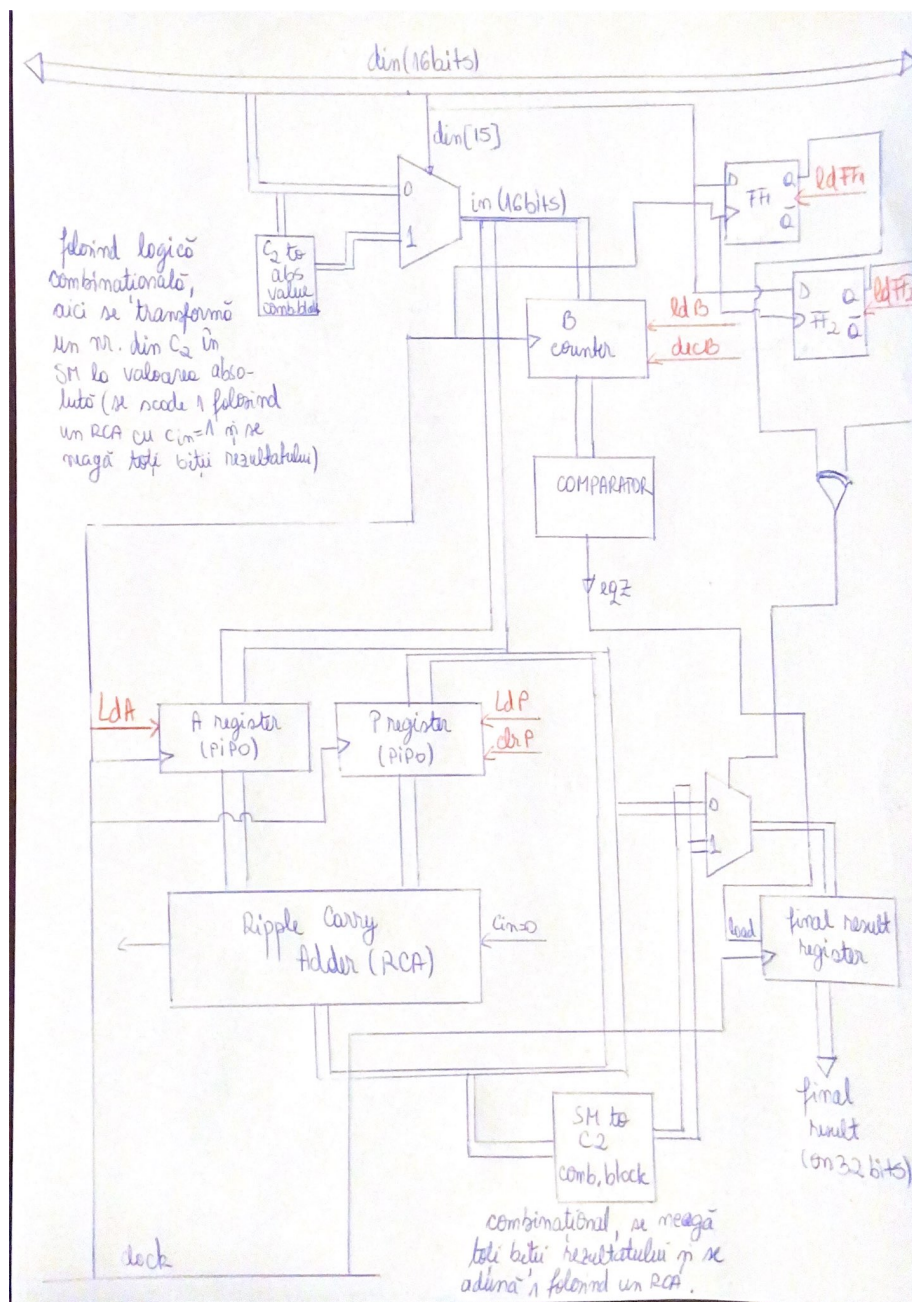 din(16bits)
din[15]
0
1
in (16bits)
C2 to
abs
value
comb.block
folosind logică
combinațională,
aici se transformă
un nr. din C2 în
SM la valoarea abso-
lută (se scade 1 folosind
un RCA cu cin=1 și se
neagă toți biții rezultatului)
D
Q
FF1
Q̅
ldFF1
D
Q
FF2
Q̅
ldFF2
B
counter
ldB
decB
COMPARATOR
eqZ
LdA
A register
(PiPO)
P register
(PiPO)
LdP
clrP
0
1
Ripple Carry
Adder (RCA)
cin=0
load
final result
register
final
result
(on 32 bits)
SM to
C2
comb. block
combinațional, se neagă
toți biții rezultatului și se
adună 1 folosind un RCA.
clock